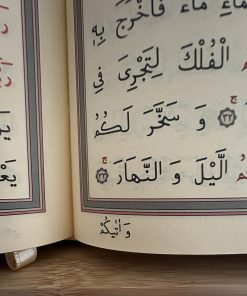 مَاءً فَاَخْرَجَ بِهٖ
الْفُلْكَ لِتَجْرِىَ فِى
٣٢ وَ سَخَّرَ لَكُمُ
الَّيْلَ وَ النَّهَارَ ٣٣
وَ اٰتٰيكُمْ